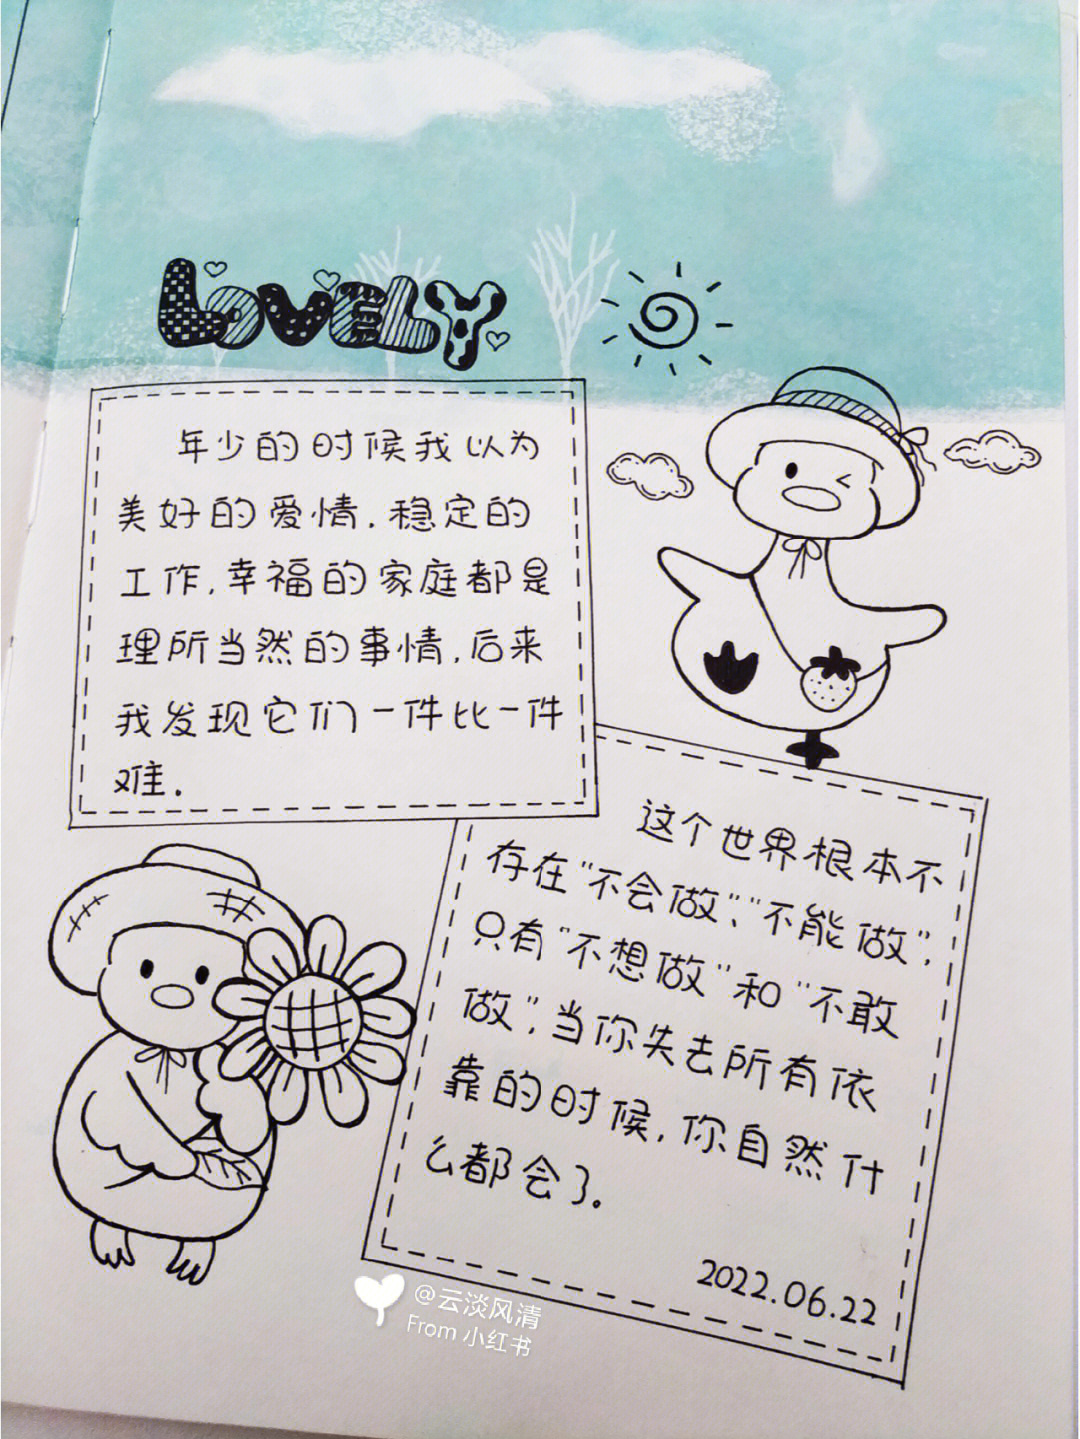 LOVELY
年少的时候我以为
美好的爱情.稳定的
工作,幸福的家庭都是
理所当然的事情,后来
我发现它们一件比一件
难.
这个世界根本不
存在"不会做"、"不能做",
只有"不想做"和"不敢
做",当你失去所有依
靠的时候,你自然什
么都会了。
2022.06.22
@云淡风清
From 小红书